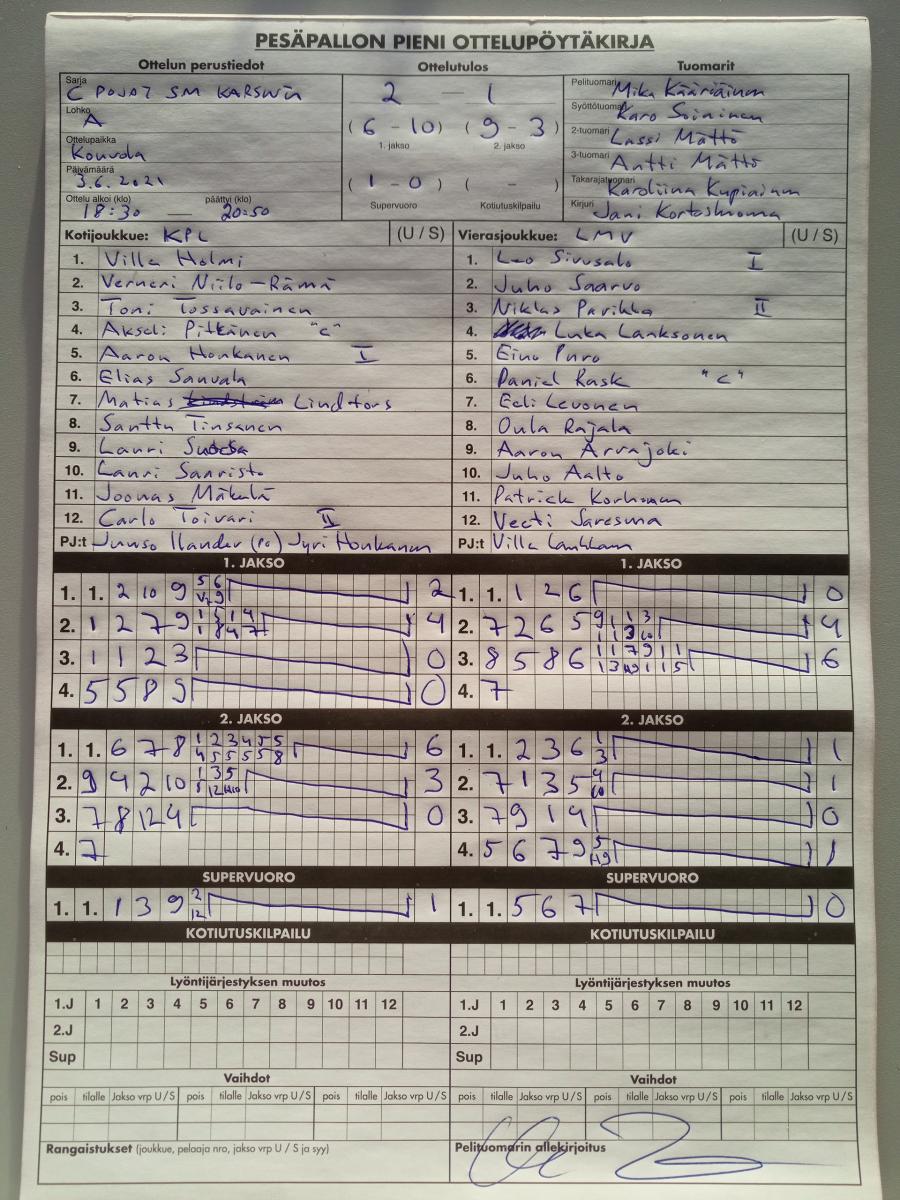 PESÄPALLON PIENI OTTELUPÖYTÄKIRJA
Ottelun perustiedot
Sarja
C POJAT SM KARSINTA
Lohko
A
Ottelupaikka
Kouvola
Päivämäärä
3.6.2021
Ottelu alkoi (klo) päättyi (klo)
18:30 — 20:50
Ottelutulos
2 — 1
(6 - 10) (9 - 3)
1. jakso 2. jakso
(1 - 0) ( - )
Supervuoro Kotiutuskilpailu
Tuomarit
Pelituomari Mika Kääriäinen
Syöttötuomari Karo Soininen
2-tuomari Lassi Mättö
3-tuomari Antti Mättö
Takarajatuomari Karoliina Kupiainen
Kirjuri Jani
Kotijoukkue: KPL (U / S)
1. Ville Holmi
2. Verneri Niilo-Rämä
3. Toni Tossavainen
4. Akseli Pitkänen "C"
5. Aaron Honkanen I
6. Elias
7. Matias Lindfors
8. Santtu Tinsanen
9. Lauri
10. Lauri Saaristo
11. Joonas Mäkelä
12. Carlo Toivari II
PJ:t Juuso Ilander (PJ) Jyri Honkanen
Vierasjoukkue: LMV (U / S)
1. Leo Sivusalo I
2. Juho Saarvo
3. Niklas Parikka II
4. Luka Laaksonen
5. Eino Puro
6. Daniel Rask "C"
7. Eeli Levonen
8. Oula Rajala
9. Aaron Arvajoki
10. Juho Aalto
11. Patrick Korhonen
12. Veeti Saresma
PJ:t Ville
1. JAKSO
1. 1. 2 10 9 2
2. 1 2 7 9 4
3. 1 1 2 3 0
4. 5 5 8 9 0
1. JAKSO
1. 1. 1 2 6 0
2. 7 2 6 5 4
3. 8 5 8 6 6
4. 7
2. JAKSO
1. 1. 6 7 8 6
2. 9 4 2 10 3
3. 7 8 12 4 0
4. 7
2. JAKSO
1. 1. 2 3 6 1
2. 7 1 3 5 1
3. 7 9 1 4 0
4. 5 6 7 9 1
SUPERVUORO
1. 1. 1 3 9 2 12 1
SUPERVUORO
1. 1. 5 6 7 0
KOTIUTUSKILPAILU
KOTIUTUSKILPAILU
Lyöntijärjestyksen muutos
1.J 1 2 3 4 5 6 7 8 9 10 11 12
2.J
Sup
Lyöntijärjestyksen muutos
1.J 1 2 3 4 5 6 7 8 9 10 11 12
2.J
Sup
Vaihdot
pois tilalle Jakso vrp U / S pois tilalle Jakso vrp U / S pois tilalle Jakso vrp U / S
Vaihdot
pois tilalle Jakso vrp U / S pois tilalle Jakso vrp U / S pois tilalle Jakso vrp U / S
Rangaistukset (joukkue, pelaaja nro, jakso vrp U / S ja syy)
Pelituomarin allekirjoitus